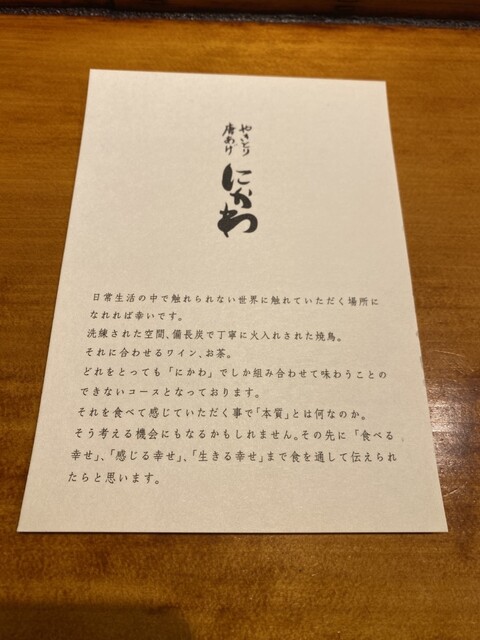 やきとり
唐あげ
にかわ
日常生活の中で触れられない世界に触れていただく場所に
なれれば幸いです。
洗練された空間、備長炭で丁寧に火入れされた焼鳥。
それに合わせるワイン、お茶。
どれをとっても「にかわ」でしか組み合わせて味わうことの
できないコースとなっております。
それを食べて感じていただく事で「本質」とは何なのか。
そう考える機会にもなるかもしれません。その先に「食べる
幸せ」、「感じる幸せ」、「生きる幸せ」まで食を通して伝えられ
たらと思います。